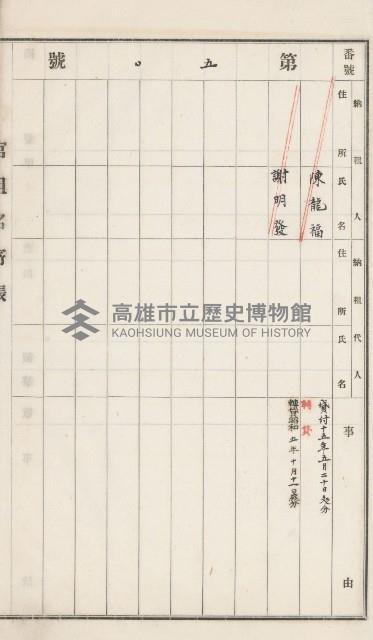 番號
第五〇號
納租人
住所氏名
陳龍福
謝明發
納租代人
住所氏名
事由
貸付十五年五月二十日起分
轉貸
轉貸昭和五年十月十一日起分
高雄市立歷史博物館
KAOHSIUNG MUSEUM OF HISTORY